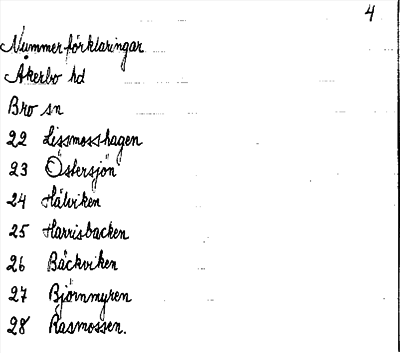 4
Nummerförklaringar
Åkerbo hd
Bro sn
22 Lissmosshagen
23 Östersjön
24 Hälviken
25 Harrisbacken
26 Bäckviken
27 Björnmyren
28 Rasmossen.